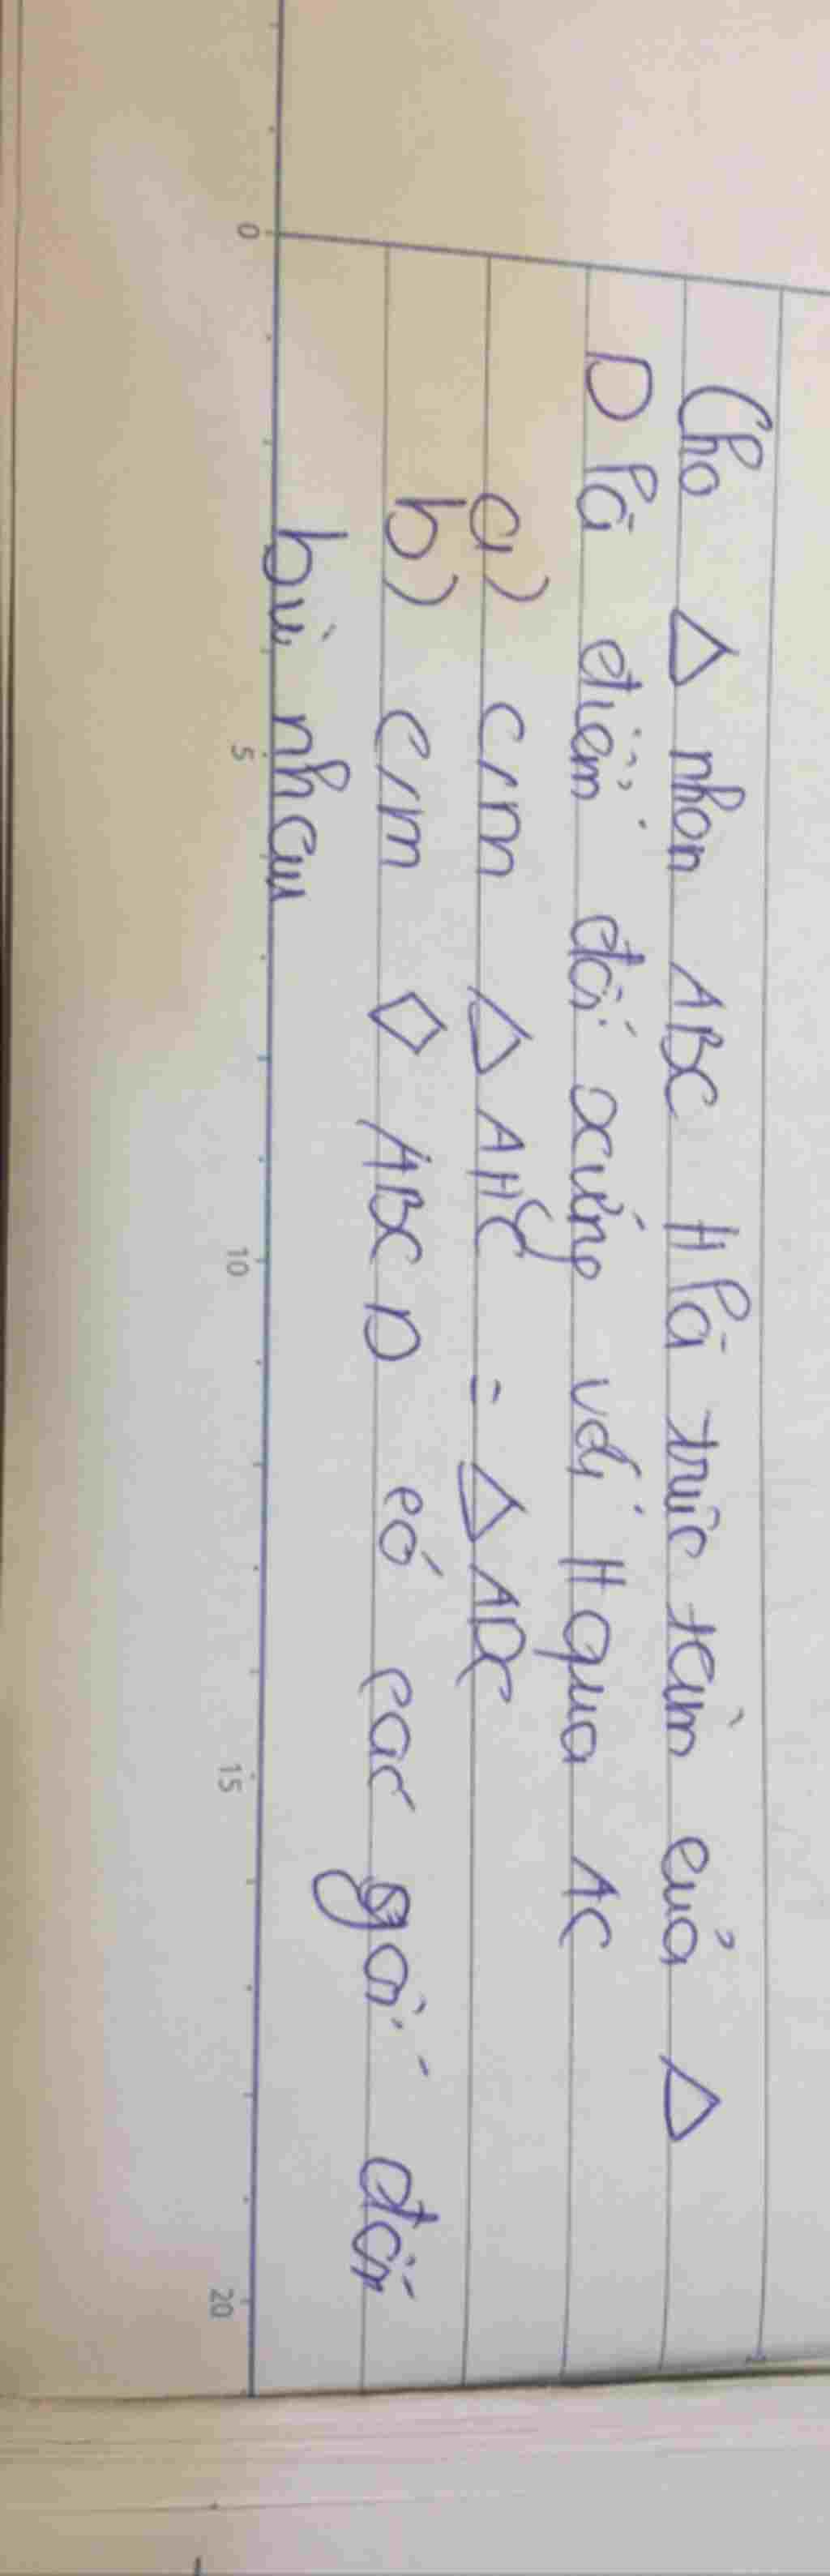 Cho △ nhọn ABC H là trực tâm của △
D là điểm đối xứng với H qua AC
a) c/m △ AHC = △ ADC
b) c/m ◇ ABCD có các góc đối
bù nhau
0 5 10 15 20